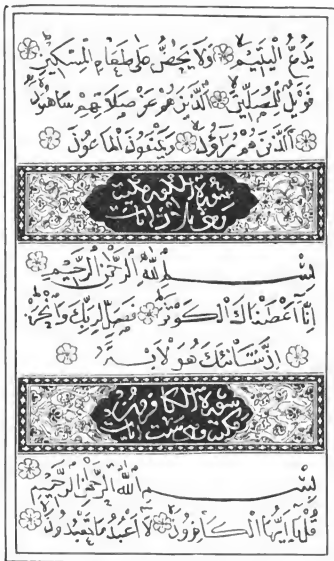 يَدُعُّ الْيَتِيمَ وَلَا يَحُضُّ عَلَى طَعَامِ الْمِسْكِينِ
فَوَيْلٌ لِلْمُصَلِّينَ الَّذِينَ هُمْ عَنْ صَلَاتِهِمْ سَاهُونَ
الَّذِينَ هُمْ يُرَاؤُنَ وَيَمْنَعُونَ الْمَاعُونَ
سورة الكوثر مكية
وهي ثلاث آيات
بِسْمِ اللَّهِ الرَّحْمَنِ الرَّحِيمِ
إِنَّا أَعْطَيْنَاكَ الْكَوْثَرَ فَصَلِّ لِرَبِّكَ وَانْحَرْ
إِنَّ شَانِئَكَ هُوَ الْأَبْتَرُ
سورة الكافرون
مكية وهي ست آيات
بِسْمِ اللَّهِ الرَّحْمَنِ الرَّحِيمِ
قُلْ يَا أَيُّهَا الْكَافِرُونَ لَا أَعْبُدُ مَا تَعْبُدُونَ